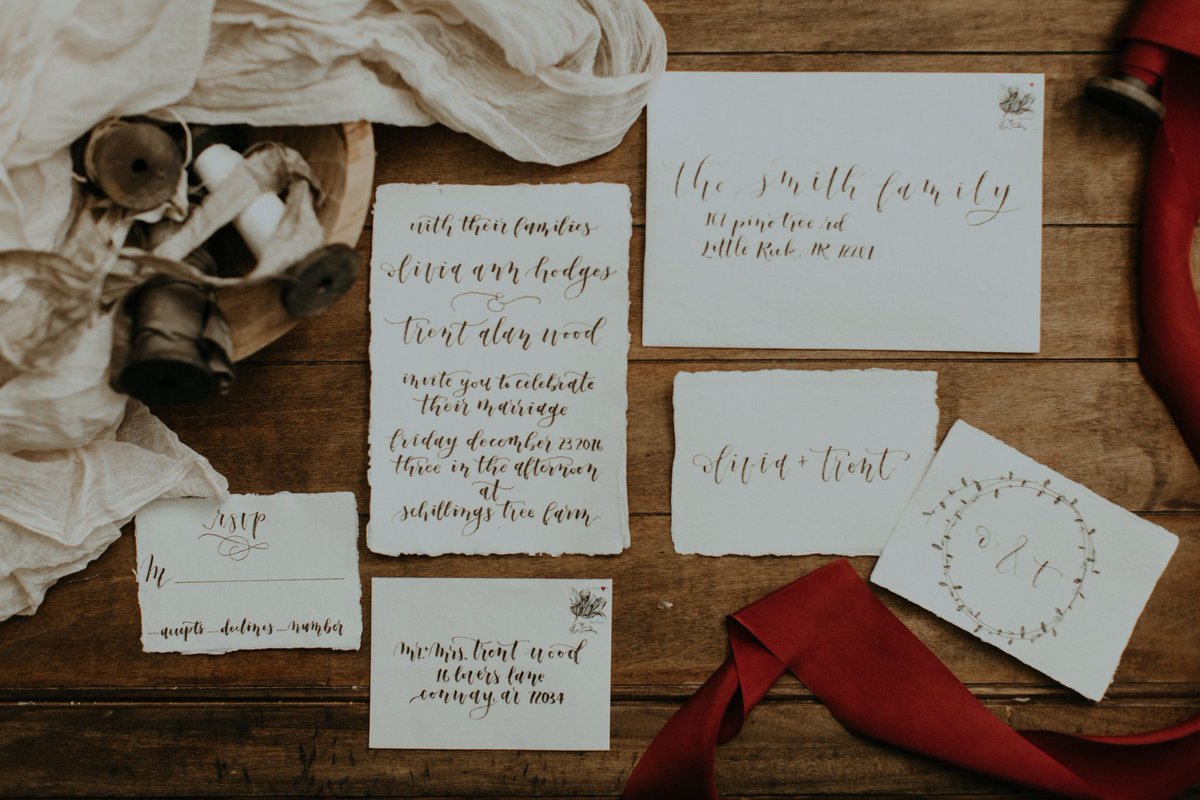 with their families
olivia ann hodges
&
trent alan wood
invite you to celebrate
their marriage
friday december 23 2016
three in the afternoon
at
schillings tree farm
the smith family
101 pine tree rd
Little Rock, AR 72201
olivia + trent
o & t
rsvp
M
_accepts_declines_number
mr. + mrs. trent wood
16 lovers lane
conway, ar 72034